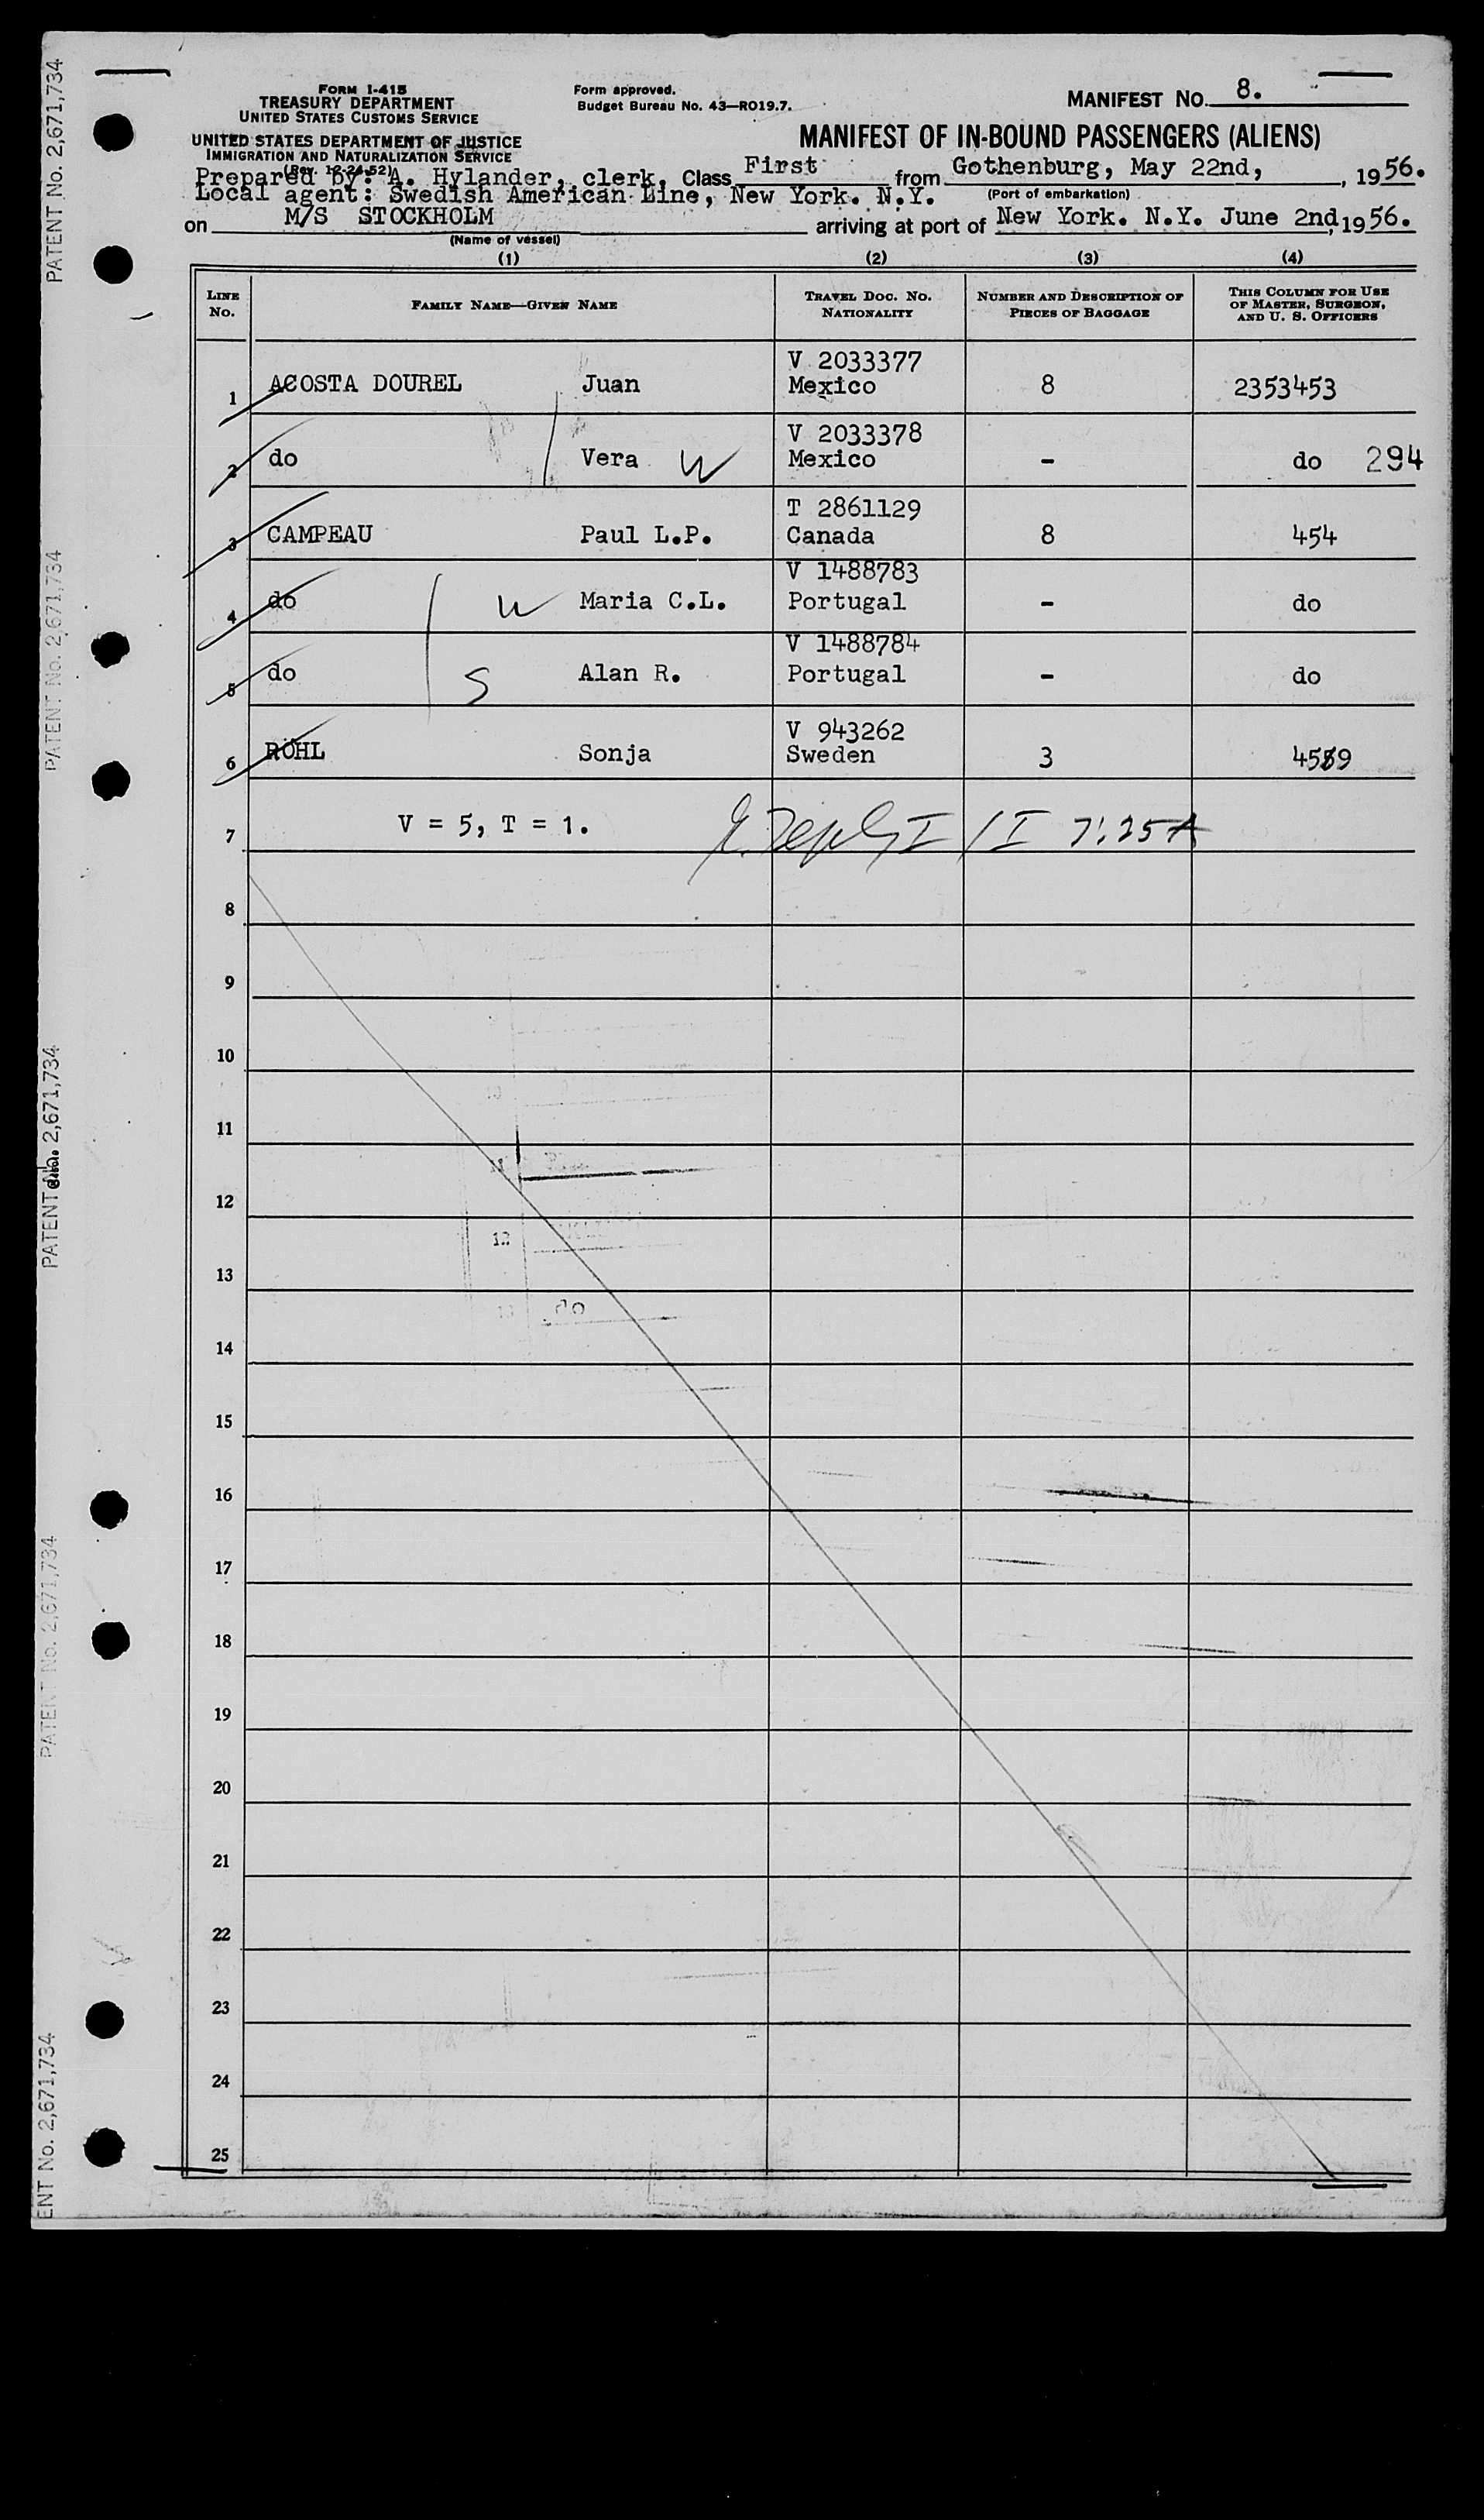 FORM I-415
TREASURY DEPARTMENT
UNITED STATES CUSTOMS SERVICE
UNITED STATES DEPARTMENT OF JUSTICE
IMMIGRATION AND NATURALIZATION SERVICE
(Rev. 12-24-52)
Form approved.
Budget Bureau No. 43—RO19.7.
MANIFEST NO. 8.
MANIFEST OF IN-BOUND PASSENGERS (ALIENS)
Prepared by: A. Hylander, clerk. Class First from Gothenburg, May 22nd, , 1956.
Local agent: Swedish American Line, New York. N.Y. (Port of embarkation)
on M/S STOCKHOLM arriving at port of New York. N.Y. June 2nd, 1956.
(Name of vessel)
(1) (2) (3) (4)
LINE NO. FAMILY NAME—GIVEN NAME TRAVEL DOC. NO. NATIONALITY NUMBER AND DESCRIPTION OF PIECES OF BAGGAGE THIS COLUMN FOR USE OF MASTER, SURGEON, AND U. S. OFFICERS
V 2033377
1 ACOSTA DOUREL Juan Mexico 8 2353453
V 2033378
2 do Vera W Mexico - do 294
T 2861129
3 CAMPEAU Paul L.P. Canada 8 454
V 1488783
4 do W Maria C.L. Portugal - do
V 1488784
5 do S Alan R. Portugal - do
V 943262
6 RÖHL Sonja Sweden 3 4559
7 V = 5, T = 1. I / I 7:25A
8
9
10
11
12
12
13
do
14
15
16
17
18
19
20
21
22
23
24
25
PATENT No. 2,671,734
PATENT No. 2,671,734
PATENT No. 2,671,734
PATENT No. 2,671,734
ENT No. 2,671,734